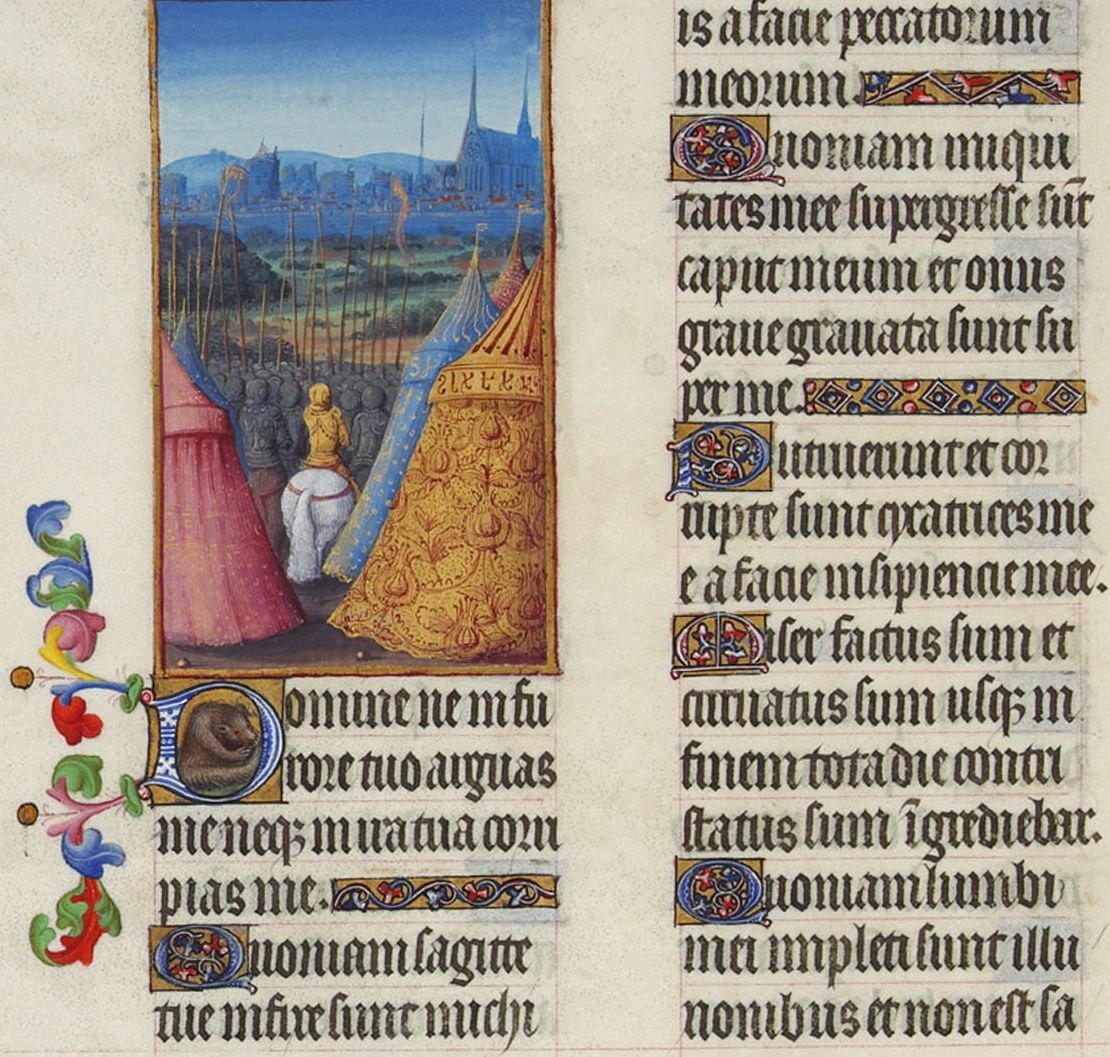 Domine ne in fu
rore tuo arguas
me neq; in ira tua corri
pias me.
Quoniam sagitte
tue infixe sunt michi
is a facie peccatorum
meorum.
Quoniam iniqui
tates mee supergresse sūt
caput meum et onus
graue grauata sunt su
per me.
Putruerunt et cor
rupte sunt cycatrices me
e a facie insipiencie mee.
Miser factus sum et
curuatus sum usq; in
finem tota die contri
status sum īgrediebar.
Quoniam lumbi
mei impleti sunt illu
nonibus et non est sa